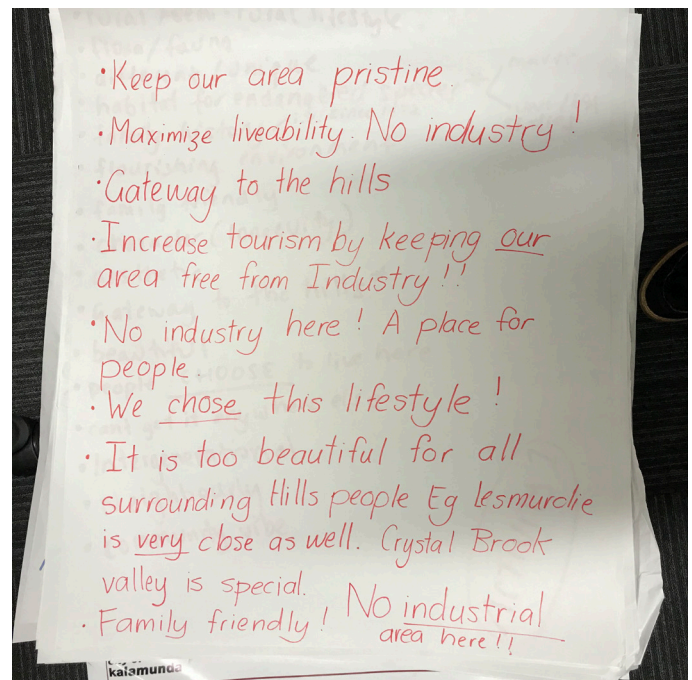 • Keep our area pristine.
• Maximize liveability. No industry!
• Gateway to the hills
• Increase tourism by keeping our
area free from Industry!!
• No industry here! A place for
people.
• We chose this lifestyle!
• It is too beautiful for all
surrounding Hills people Eg Lesmurdie
is very close as well. Crystal Brook
valley is special.
• Family friendly! No industrial
area here!!
kalamunda